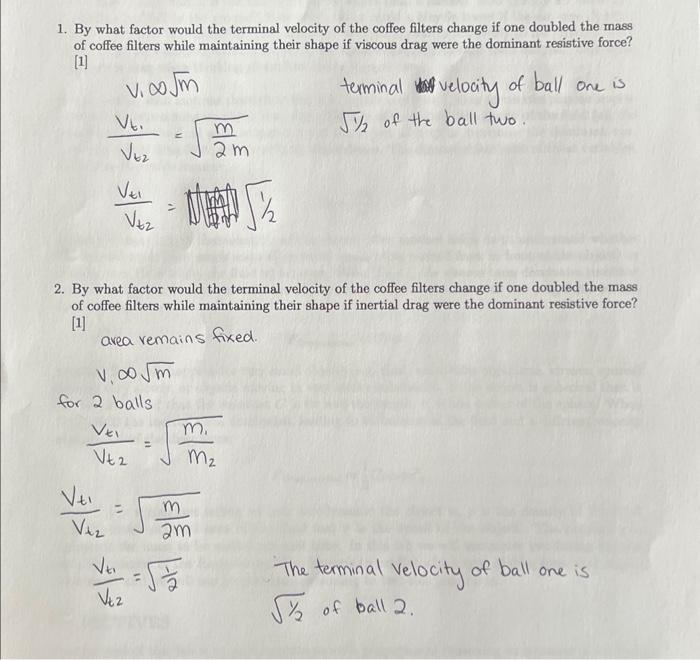 1. By what factor would the terminal velocity of the coffee filters change if one doubled the mass
of coffee filters while maintaining their shape if viscous drag were the dominant resistive force?
[1]
V₁ ∞ √m
terminal velocity of ball one is
√½ of the ball two.
Vt₁/Vt₂ = √(m/2m)
Vt₁/Vt₂ = √½
2. By what factor would the terminal velocity of the coffee filters change if one doubled the mass
of coffee filters while maintaining their shape if inertial drag were the dominant resistive force?
[1]
area remains fixed.
V₁ ∞ √m
for 2 balls
Vt₁/Vt₂ = √(m₁/m₂)
Vt₁/Vt₂ = √(m/2m)
Vt₁/Vt₂ = √½
The terminal velocity of ball one is
√½ of ball 2.